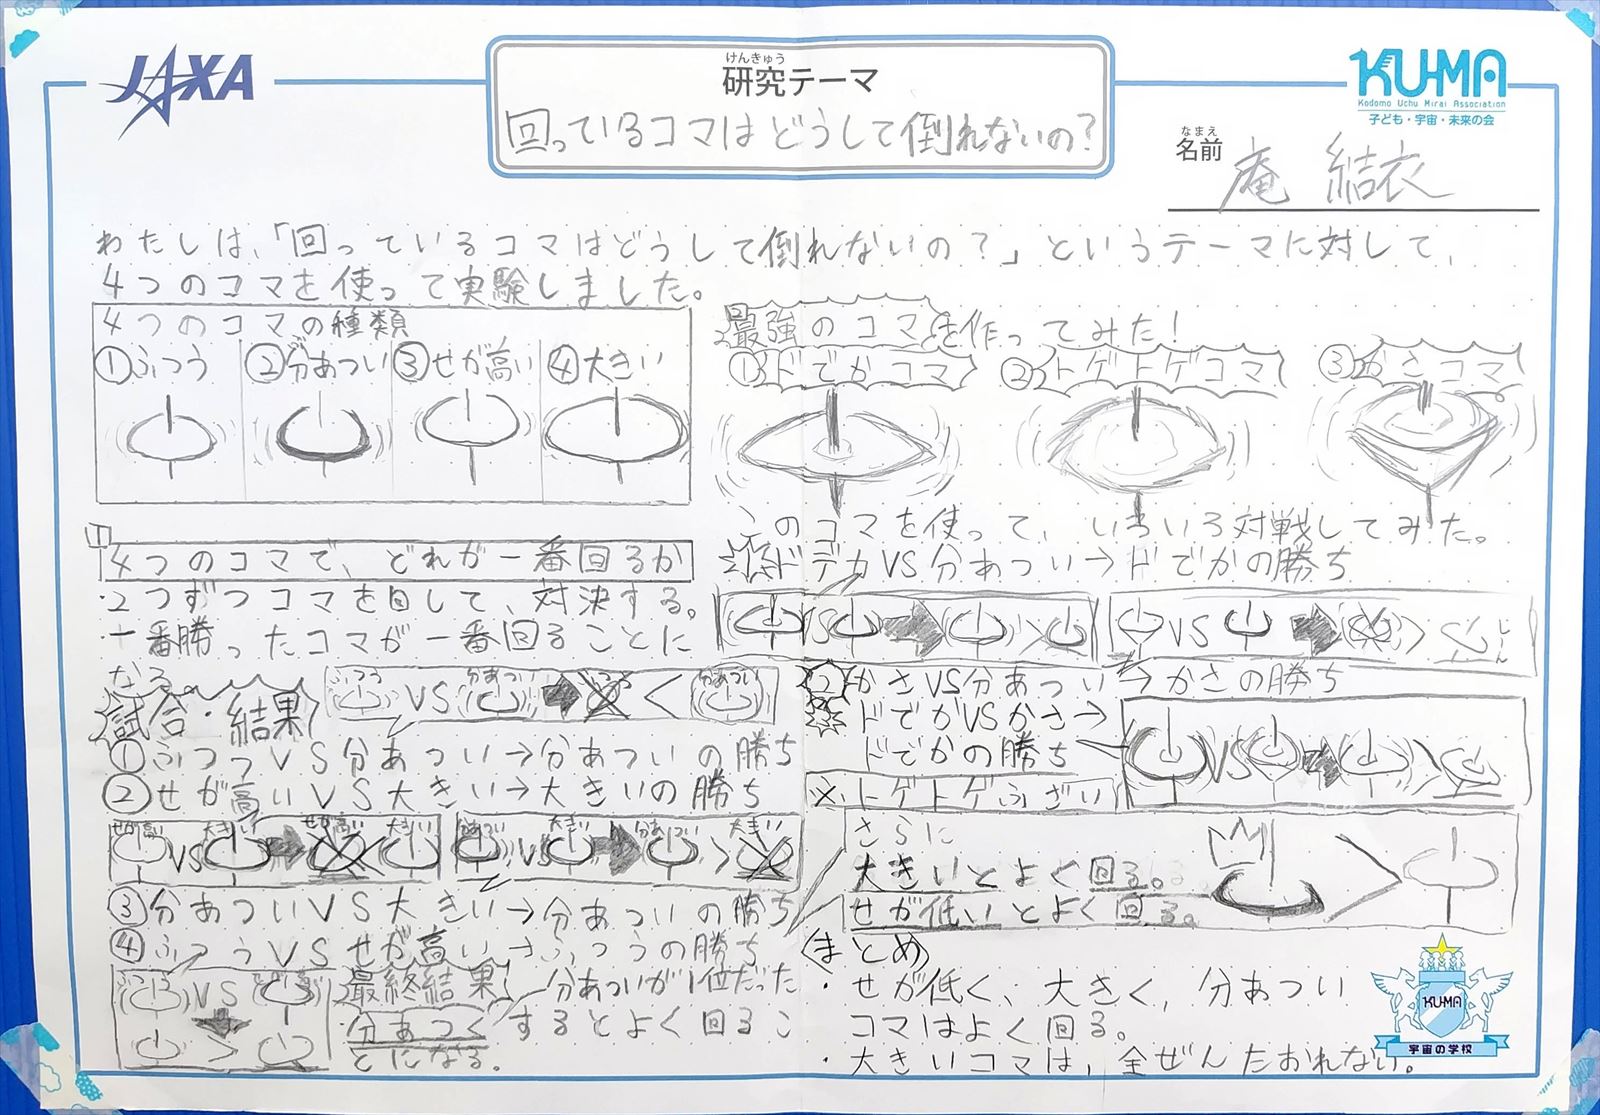 JAXA
けんきゅう
研究テーマ
回っているコマはどうして倒れないの?
KU-MA
Kodomo Uchu Mirai Association
子ども・宇宙・未来の会
なまえ
名前
庵 結衣
わたしは、「回っているコマはどうして倒れないの?」というテーマに対して、
4つのコマを使って実験しました。
4つのコマの種類
①ふつう ②分あつい ③せが高い ④大きい
1
4つのコマで、どれが一番回るか
・2つずつコマを回して、対決する。
・一番勝ったコマが一番回ることに
なる。
試合・結果
ふつう VS 分あつい ふつう < 分あつい
①ふつうVS分あつい→分あついの勝ち
②せが高いVS大きい→大きいの勝ち
せが高 VS 大きい せが高 < 大きい
分あつい VS 大きい 分あつい > 大きい
③分あついVS大きい→分あついの勝ち
④ふつうVSせが高い→ふつうの勝ち
VS
>
最終結果
分あついが1位だった
・分あつくするとよく回るこ
とになる。
最強のコマを作ってみた!
①ドでかコマ ②トゲトゲコマ ③かさコマ
このコマを使って、いろいろ対戦してみた。
ドデカVS分あつい→ドでかの勝ち
VS >
VS >
②かさVS分あつい→かさの勝ち
ドでかVSかさ→
ドでかの勝ち
VS >
※トゲトゲふざい
さらに
大きいとよく回る。
せが低いとよく回る。
>
まとめ
・せが低く、大きく、分あつい
コマはよく回る。
・大きいコマは、全ぜんたおれない。
KU-MA
宇宙の学校